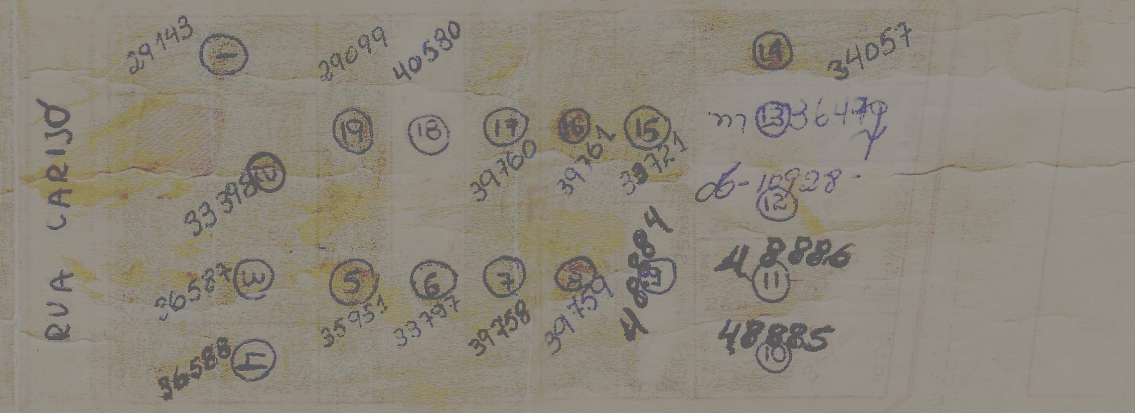 RUA CARIJO
29143 1
29099
40580
14 34057
19 18 17 16 15
m 13 36479
39760 39761 33721
33398 2
06-10928-
12
36587 3
5 6 7 8
48884
48886
11
35951 33797 39758 39759
36588 4
48885
10